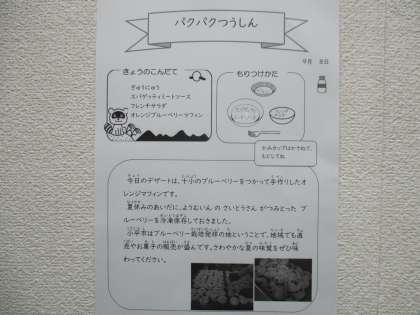 パクパクつうしん
9月 8日
きょうのこんだて
ぎゅうにゅう
スパゲッティミートソース
フレンチサラダ
オレンジブルーベリーマフィン
もりつけかた
かみカップはかさねて、
もどしてね
今日のデザートは、十小のブルーベリーをつかって手作りしたオ
レンジマフィンです。
夏休みのあいだに、ようむいん の さいとうさん がつみとった ブ
ルーベリーを冷凍保存しておきました。
小平市はブルーベリー栽培発祥の地ということで、地域でも通
売やお菓子の販売が盛んです。さわやかな夏の味覚をぜひ味
わってください。